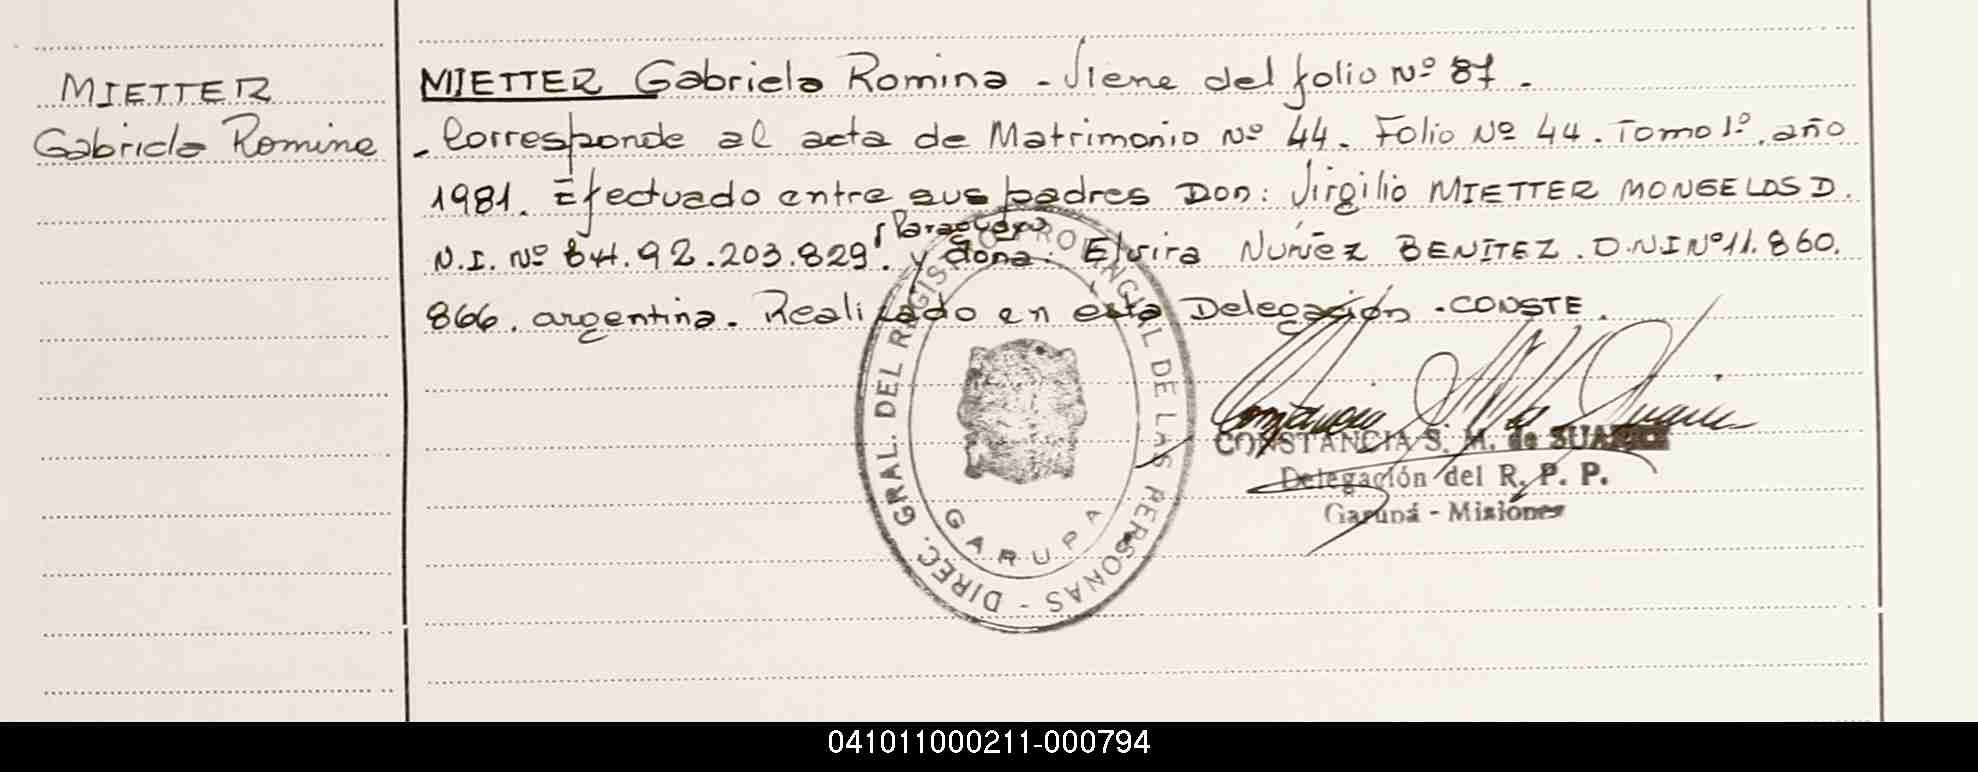 MIETTER
Gabriela Romina
MIETTER Gabriela Romina - Viene del folio Nº 87.
- Corresponde al acta de Matrimonio Nº 44. Folio Nº 44. Tomo 1º. año
1981. Efectuado entre sus padres Don: Virgilio MIETTER MONGELOS D.
(Paraguayo)
N.I. Nº 92.203.829. y doña: Elvira Nuñez BENITEZ. D.N.I Nº 11.860.
866. argentina. Realizado en esta Delegación. CONSTE.
DIREC. GRAL. DEL REGISTRO PROVINCIAL DE LAS PERSONAS -
GARUPA
CONSTANCIA S. M. de SUAREZ
Delegación del R. P. P.
Garupá - Misiones
041011000211-000794